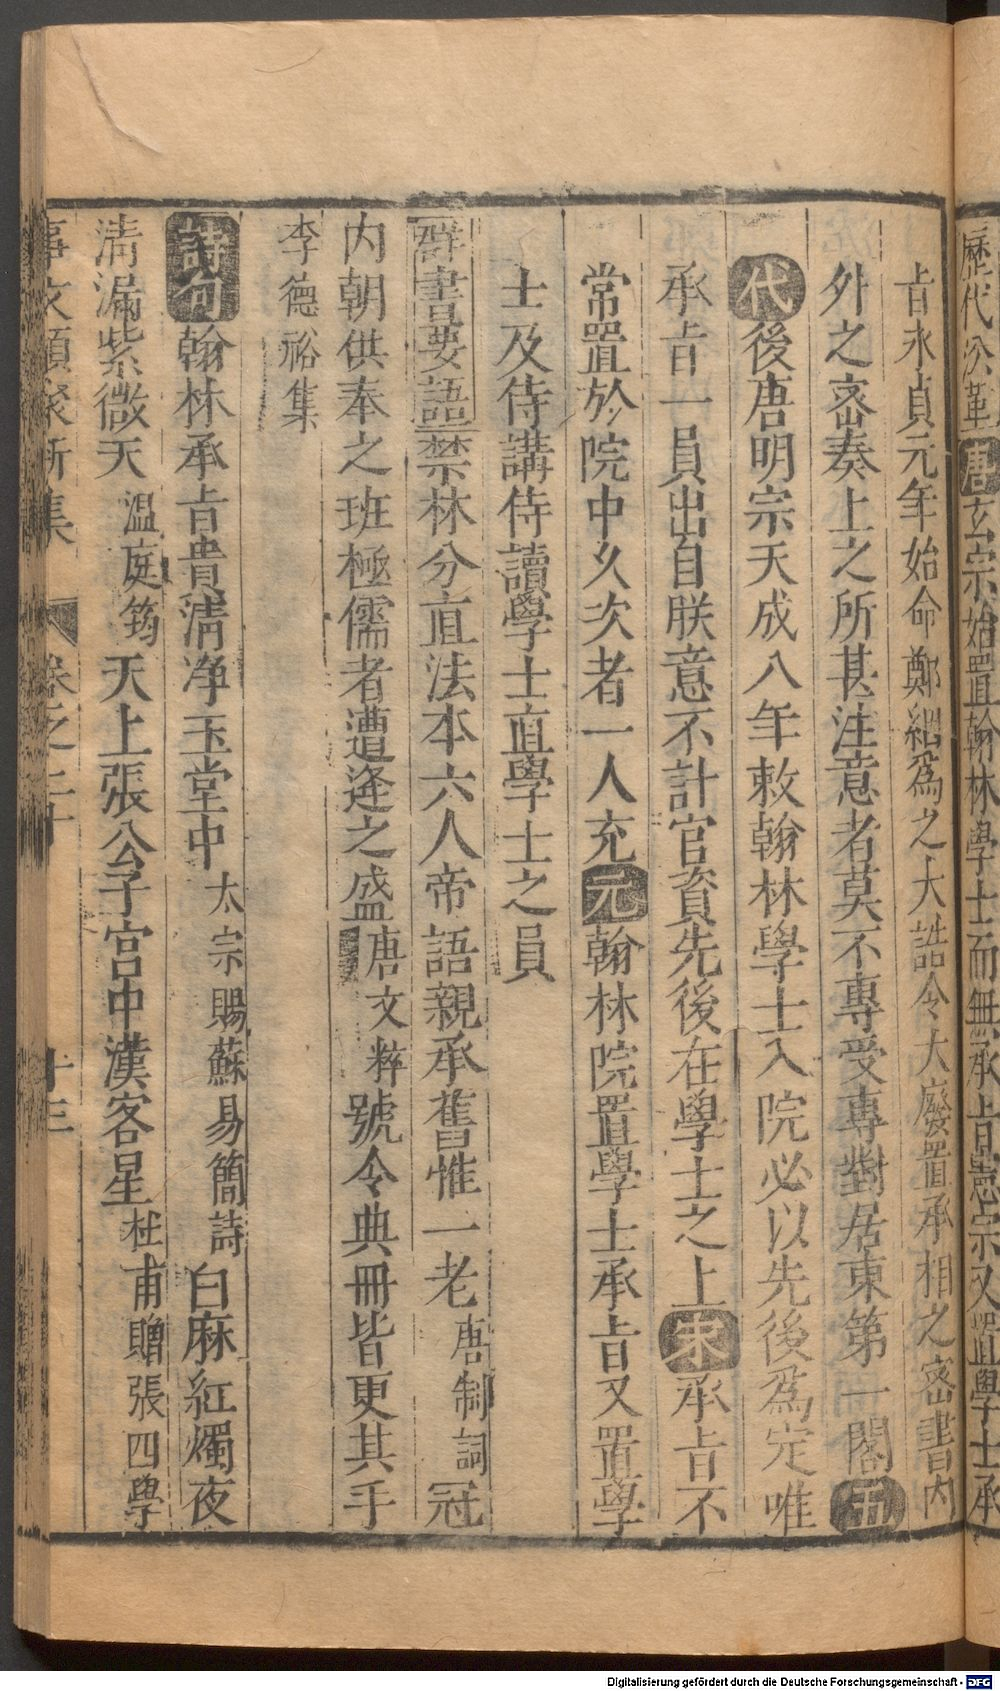 歷代沿革唐玄宗始置翰林學士而無承㫖憲宗又置學士承
㫖永貞元年始命鄭絪爲之大誥令大廢置丞相之密書内
外之密奏上之所甚注意者莫不專受專對居東第一閣五
代後唐明宗天成八年敕翰林學士入院必以先後爲定唯
承㫖一員出自朕意不計官資先後在學士之上宋承㫖不
常置於院中久次者一人充元翰林院置學士承㫖又置學
士及侍講侍讀學士直學士之員
群書要語禁林分直法本六人帝語親承舊惟一老唐制詞冠
内朝供奉之班極儒者遭逢之盛唐文粹號令典冊皆更其手
李德裕集
詩句翰林承㫖貴清净玉堂中太宗賜蘇易簡詩白麻紅燭夜
清漏紫微天温庭筠天上張公子宫中漢客星杜甫贈張四學
事文類聚新集 卷之二十 十三
Digitalisierung gefördert durch die Deutsche Forschungsgemeinschaft - DFG